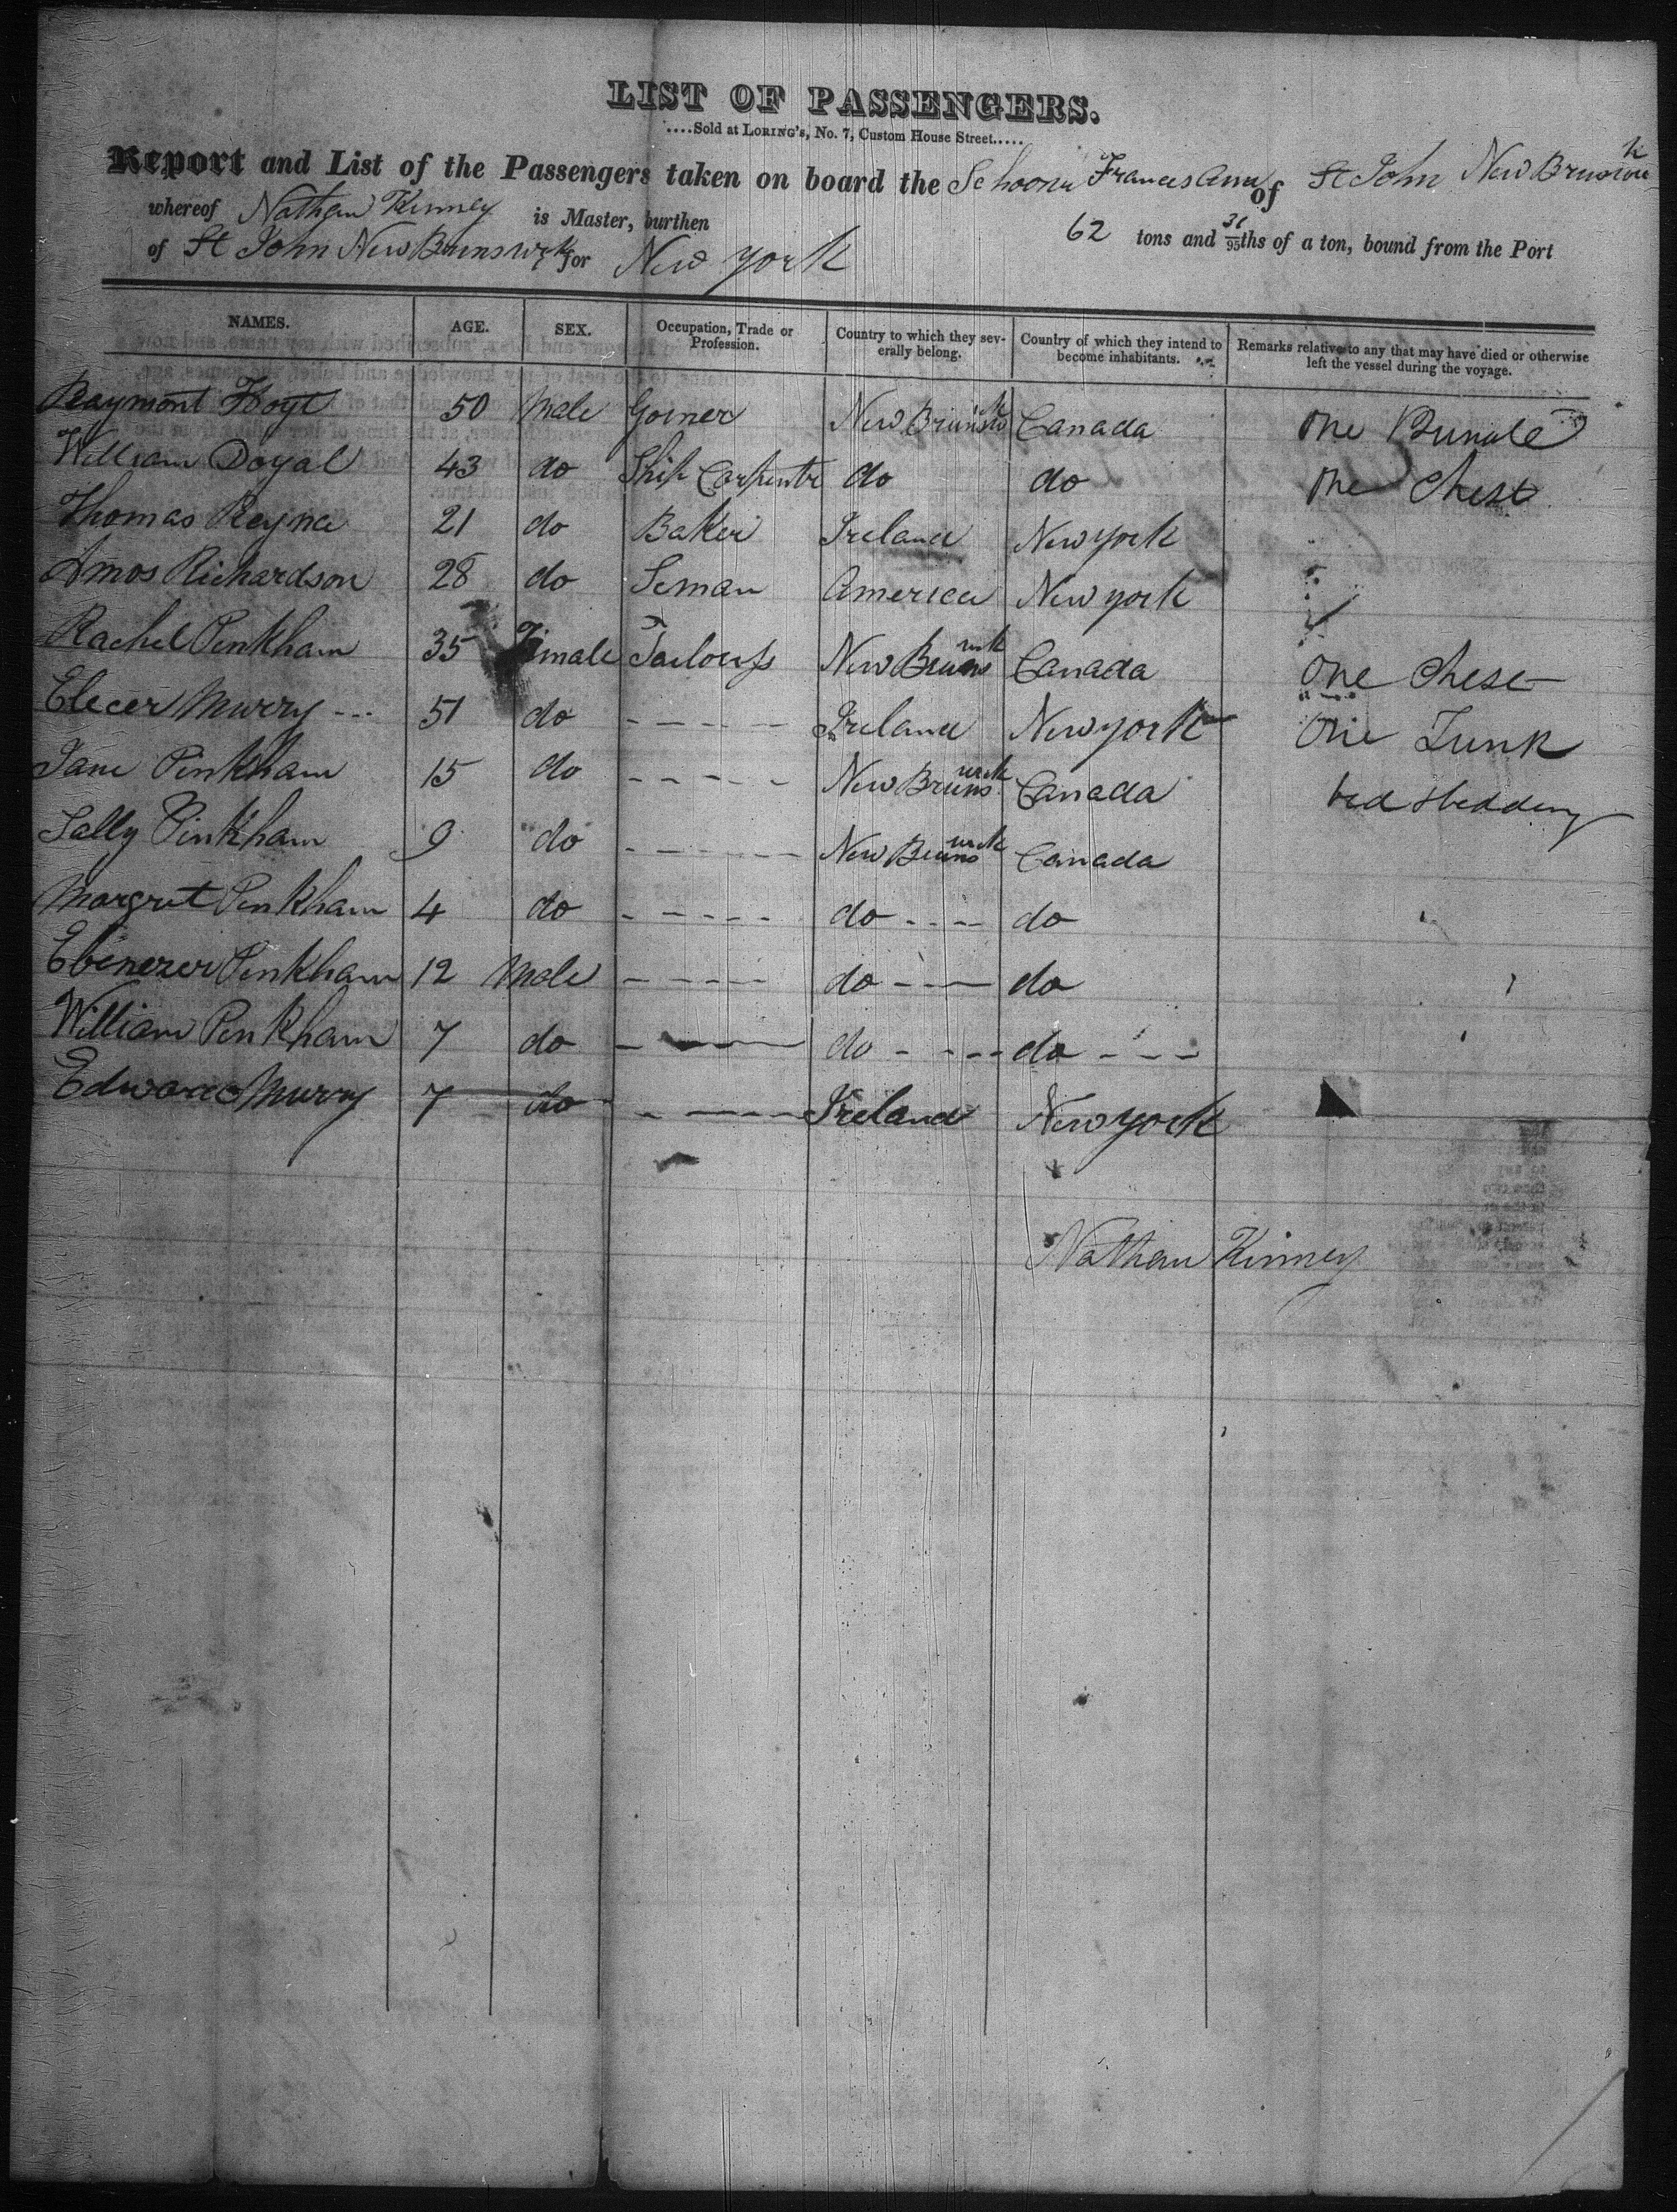 LIST OF PASSENGERS.
....Sold at LORING's, No. 7, Custom House Street.....
Report and List of the Passengers taken on board the Schooner Frances Ann of St John New Brunswick
whereof Nathan Kinney is Master, burthen 62 tons and 31/95ths of a ton, bound from the Port
of St John New Brunswick for New york
NAMES. AGE. SEX. Occupation, Trade or Profession. Country to which they severally belong. Country of which they intend to become inhabitants. Remarks relative to any that may have died or otherwise left the vessel during the voyage.
Raymont Hoyt 50 Male Goiner New Brunswk Canada One Bundle
William Doyal 43 do Ship Carpentr do do One Chest
Thomas Reyna 21 do Baker Ireland New york
Amos Richardson 28 do Seman America New york
Rachel Pinkham 35 Female Tailouss New Brunswick Canada One Chest
Elecer Murry --- 51 do - - - - - Ireland New york One Tunk
Jane Pinkham 15 do - - - - - New Brunswick Canada bed & bedding
Sally Pinkham 9 do - - - - - New Brunswick Canada
Margret Pinkham 4 do - - - - - do - - - do
Ebenezer Pinkham 12 Male - - - - do - - - do
William Pinkham 7 do - - - do - - - do - - -
Edward Murry 7 do - - - Ireland New york
Nathan Kinney